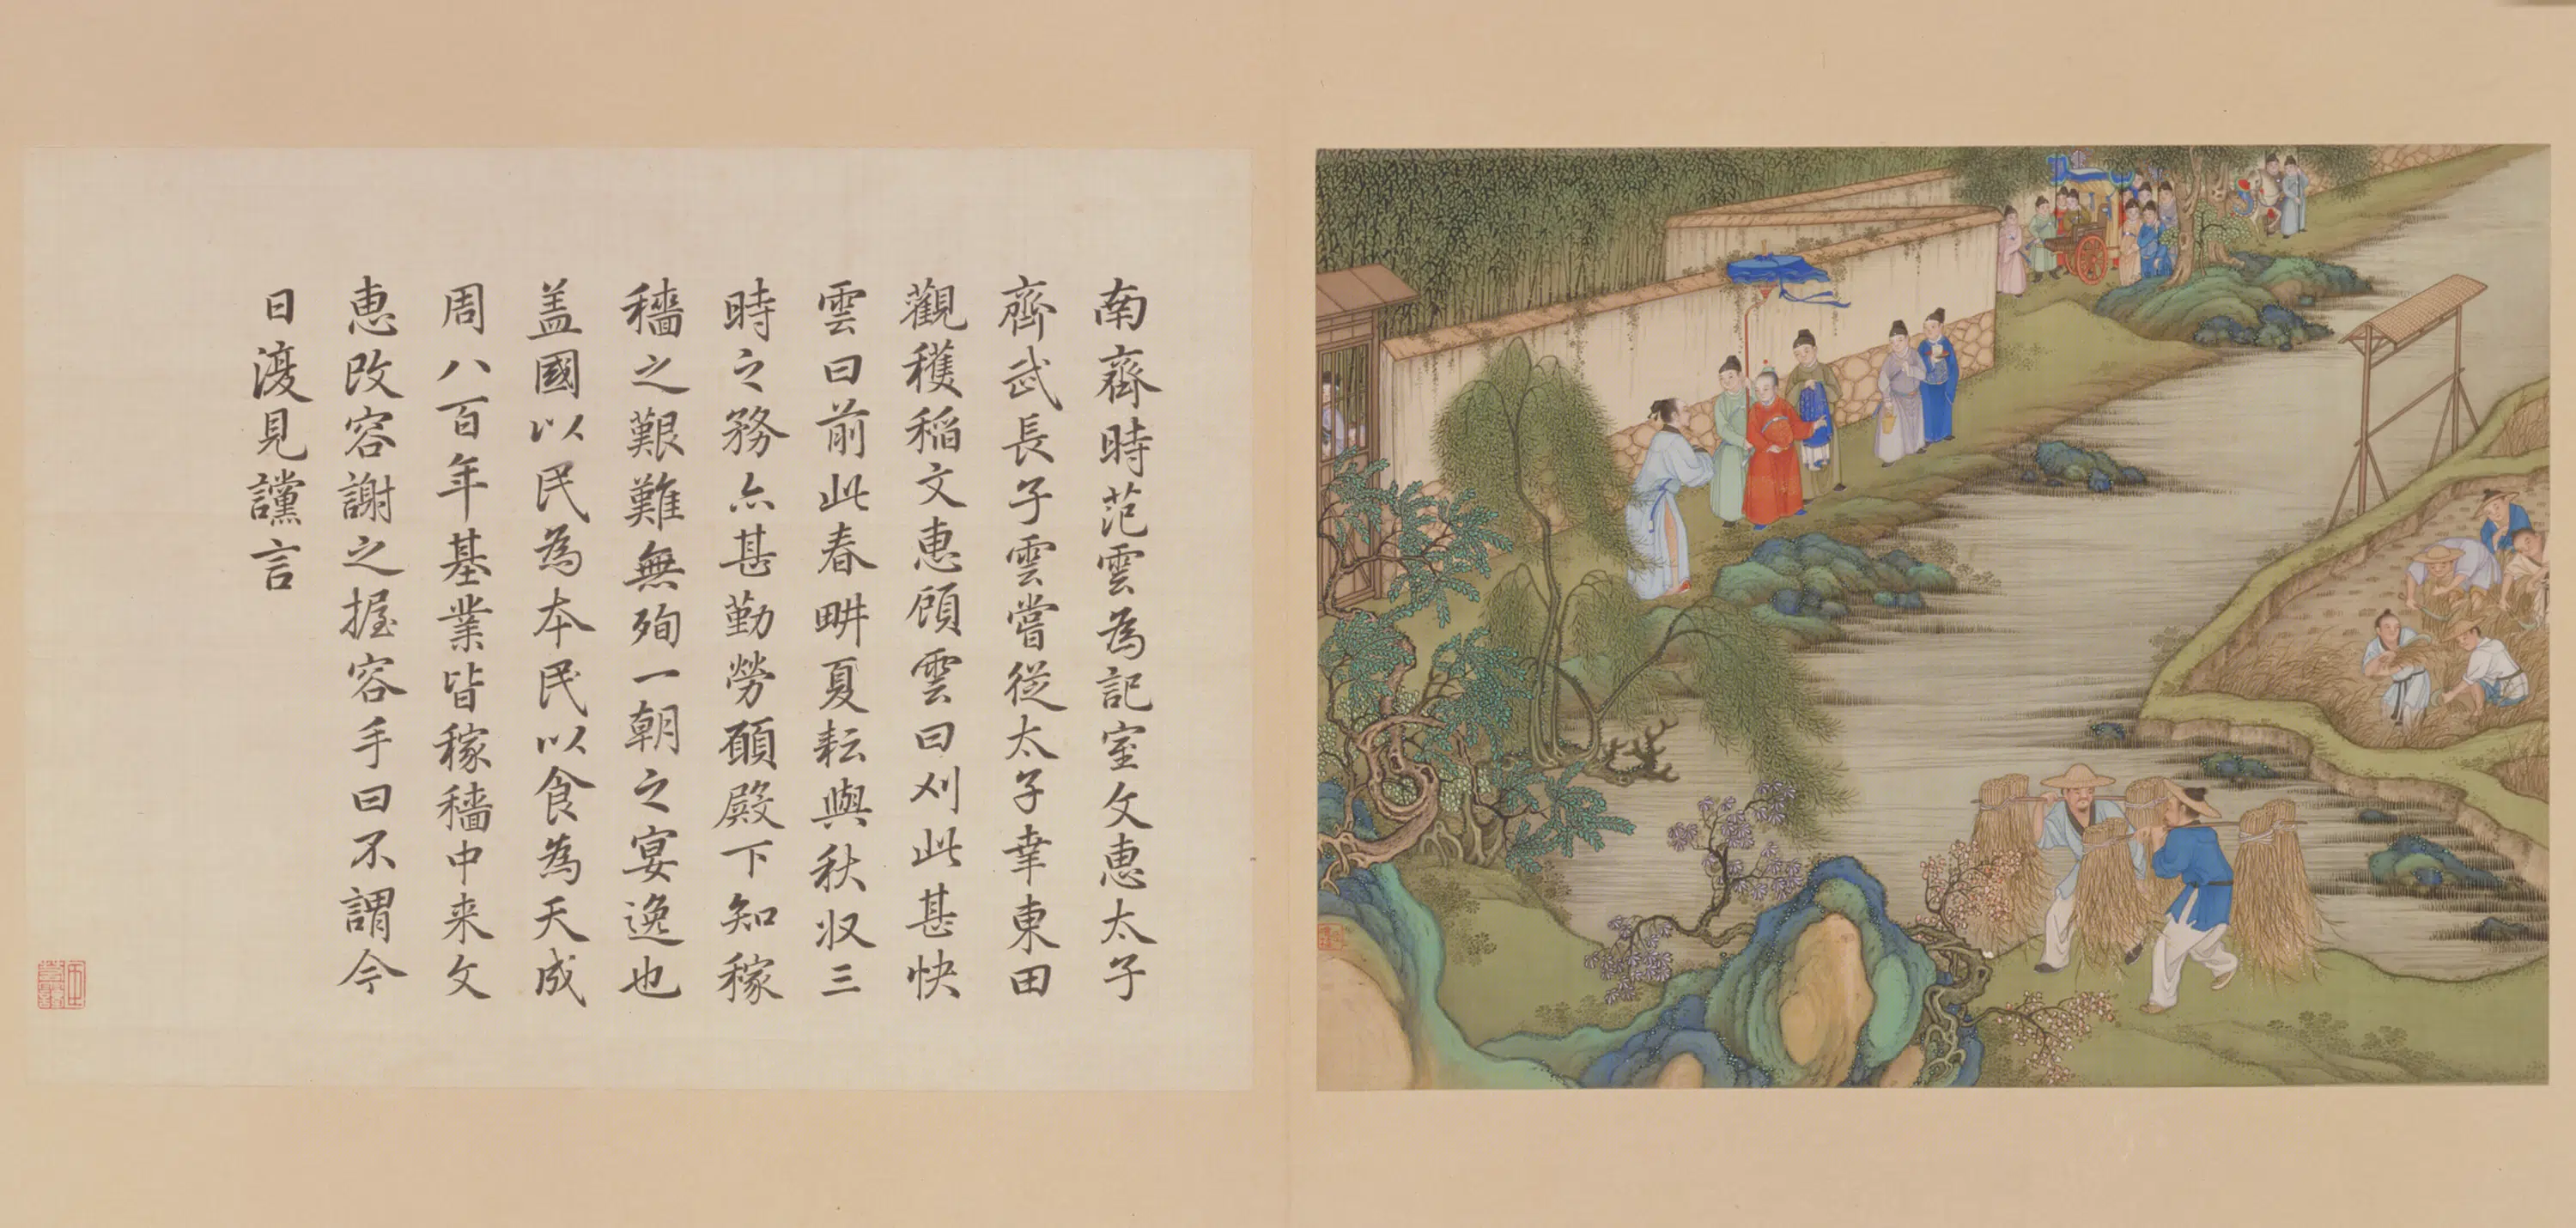 南齊時范雲為記室文惠太子
齊武長子雲嘗從太子幸東田
觀穫稲文惠顧雲曰刈此甚快
雲曰前此春畊夏耘與秋収三
時之務亦甚勤勞願殿下知稼
穡之艱難無殉一朝之宴逸也
盖國以民為本民以食為天成
周八百年基業皆稼穡中来文
惠改容謝之握容手曰不謂今
日復見讜言